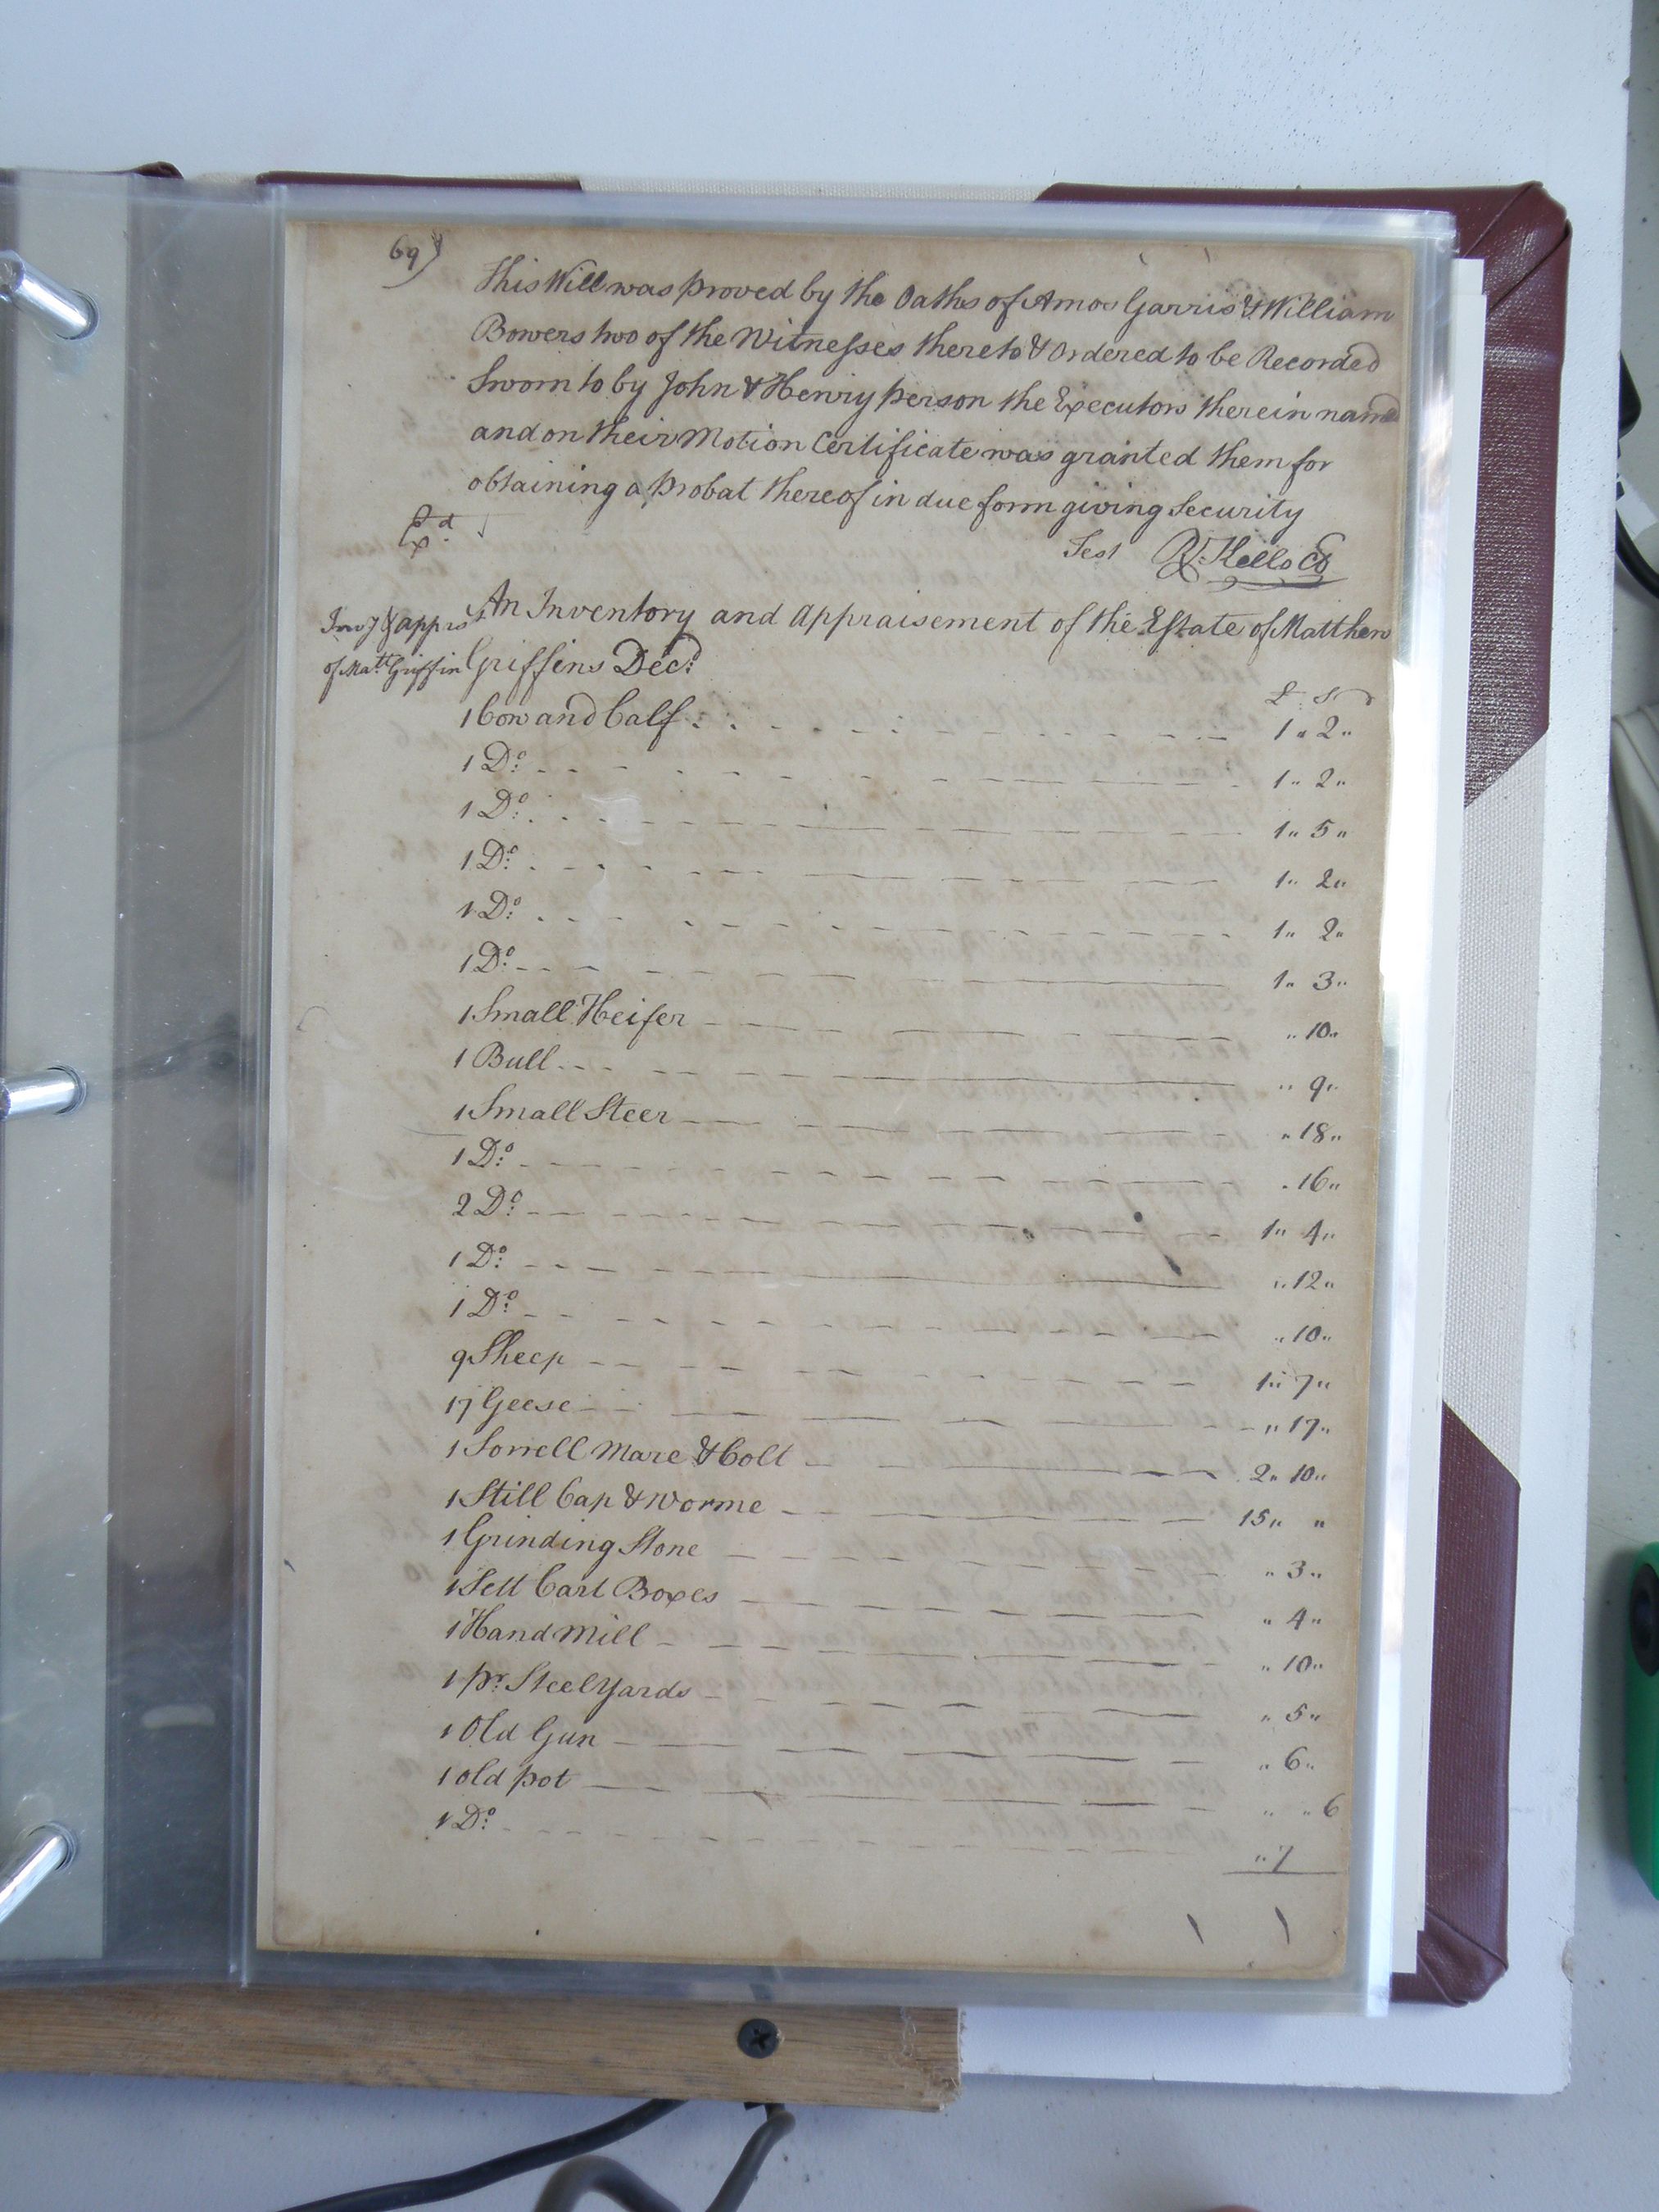 69)
This Will was proved by the Oaths of Amos Garris & William
Bowers two of the Witnesses thereto & Ordered to be Recorded
Sworn to by John & Henry person the Executors therein named
and on their Motion Certificate was granted them for
obtaining a probat thereof in due form giving Security
Exd
Test R. Kello CC
Invy & apprst An Inventory and Appraisement of the Estate of Matthew
of Matt Griffin Griffins Decd
£ S D
1 Cow and Calf 1 " 2 "
1 Do 1 " 2 "
1 Do 1 " 5 "
1 Do 1 " 2 "
1 Do 1 " 2 "
1 Do 1 " 3 "
1 Small Heifer " 10 "
1 Bull " 9 "
1 Small Steer " 18 "
1 Do " 16 "
2 Do 1 " 4 "
1 Do " 12 "
1 Do " 10 "
9 Sheep 1 " 7 "
17 Geese " 17 "
1 Sorrell Mare & Colt 2 " 10 "
1 Still Cap & Worme 15 " "
1 Grinding Stone " 3 "
1 Sett Cart Boxes " 4 "
1 Hand Mill " 10 "
1 pr Steel Yards " 5 "
1 Old Gun " 6 "
1 old pot " " 6
1 Do " 7